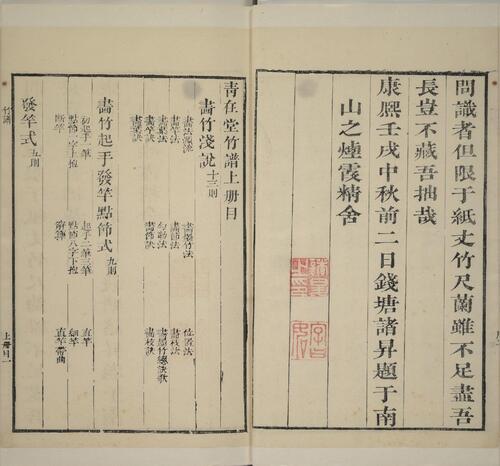 問識者但限于紙丈竹尺蘭雖不足盡吾
長豈不藏吾拙哉
康熙壬戌中秋前二日錢塘諸昇題于南
山之煙霞精舍
青在堂竹譜上册目
畫竹淺說 十三則
畫法源流
畫墨竹法
位置法
畫竿法
畫節法
畫枝法
畫葉法
勾勒法
畫墨竹總歌訣
畫竿訣
畫節訣
畫枝訣
畫葉訣
畫竹起手發竿點節式 九則
初起手一筆
起手二筆三筆
直竿
點節乙字上抱
點節八字下抱
細竿
斷竿
直竿帶曲
發竿式 五則
竹譜
上册目一